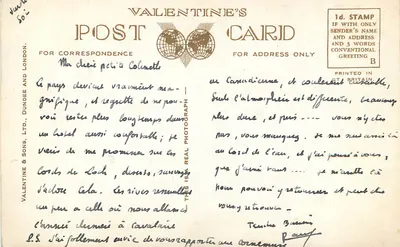 VALENTINE'S
POST CARD
FOR CORRESPONDENCE
FOR ADDRESS ONLY
1d. STAMP
IF WITH ONLY
SENDER'S NAME
AND ADDRESS
AND 5 WORDS
CONVENTIONAL
GREETING
B
PRINTED IN
GT. BRITAIN
VALENTINE & SONS, LTD., DUNDEE AND LONDON.
THIS IS A REAL PHOTOGRAPH
Ma chère petite
Ce pays devient vraiment ma-
gnifique, et regrette de ne pou-
voir rester plus longtemps dans
un hotel aussi confortable; je
viens de me promener sur les
bords du Loch, déserts, sauvages
j'adore cela. Les rives ressemblent
un peu a celle où nous allions
l'année dernière à
P.S. J'ai follement envie de vous rapporter une cornemuse
et
Seule l'atmosphère est différente, beaucoup
plus dure, et puis ... vous n'y êtes
pas, vous manquez. Je me suis assis là
au bord de l'eau, et j'ai pensé à vous,
que j'aurai ... je
nous pouvoir y retourner et peut être
vous y retrouver.
Tendres Baisers